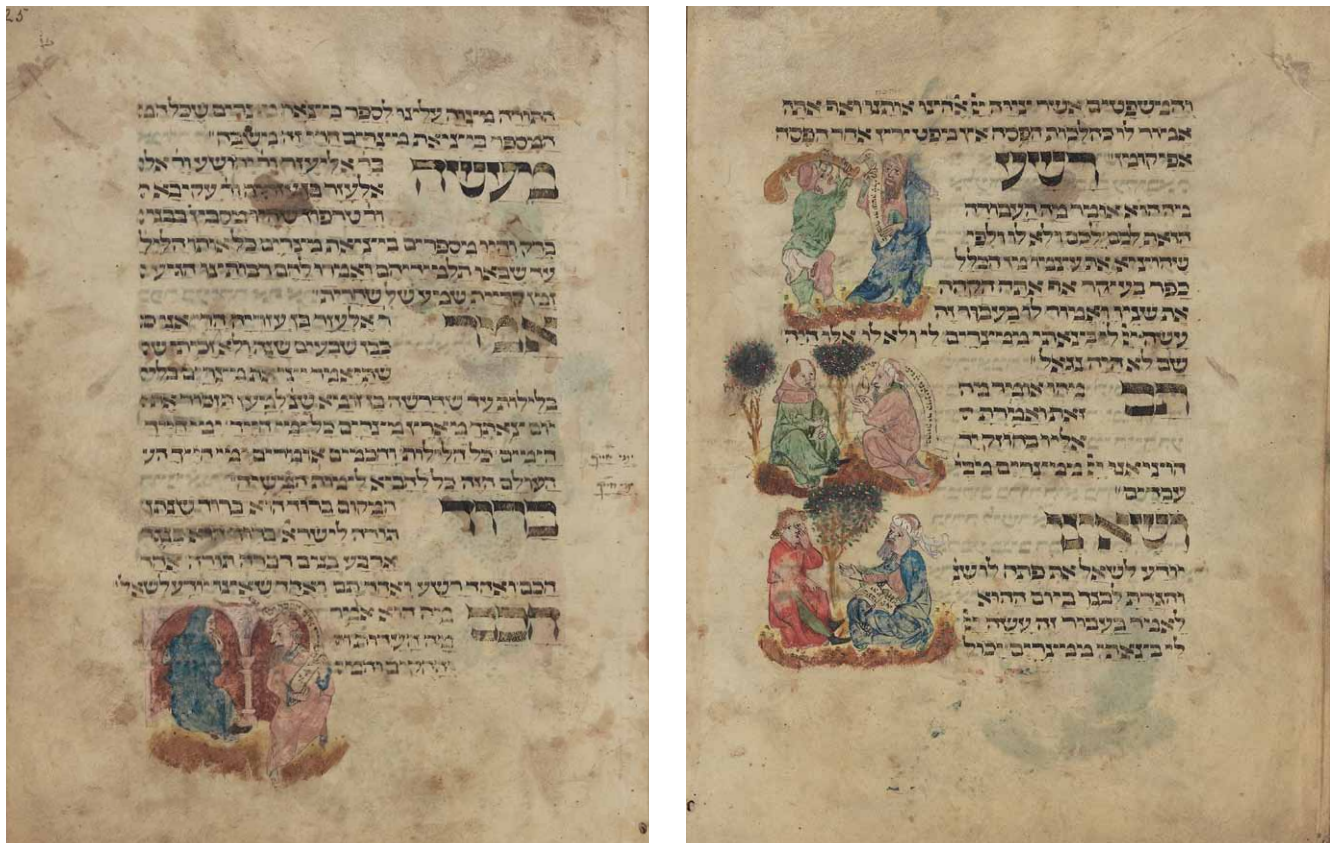 25
התורה מצוה עלינו לספר ביציאת מצרים שכל המ
המספר ביציאת מצרים הרי זה משבח
מעשה
בר אליעזר ור יהושע ור אל
אלעזר בן עזריה ור עקיבא ה
ור טרפון שהיו מסבין בבני
ברק והיו מספרים ביציאת מצרים כל אותו הליל
עד שבאו תלמידיהם ואמרו להם רבותינו הגיע
זמן קרית שמע של שחרית
אמר
ר אלעזר בן עזריה הרי אני
כבן שבעים שנה ולא זכיתי ש
שתיאמר יציאת מצרים בליל
בלילות עד שדרשה בן זומא שנ למען תזכור את
יום צאתך מארץ מצרים כל ימי חייך ימי חייך
הימים כל הלילות וחכמים אומרים ימי חייך הע
העולם הזה כל להביא לימות המשיח
ברוך
המקום ברוך הוא ברוך שנתן
תורה לישרא ברוך הוא כנגד
ארבע בנים דברה תורה אחד
חכם ואחד רשע ואחד תם ואחד שאינו יודע לשאל
חכם
מה הוא אומר
מה העדות וה
והחקים והמש
והמשפטים אשר צוה יי אלהינו אותנו ואף אתה
אמור לו כהלכות הפסח אין מפטירין אחר הפסח
אפיקומן
רשע
מה הוא אומר מה העבודה
הזאת לכם לכם ולא לו ולפי
שהוציא את עצמו מן הכלל
כפר בעיקר אף אתה הקהה
את שניו ואמור לו בעבור זה
עשה יי לי בצאתי ממצרים לי ולא לו אלו היה
שם לא היה נגאל
תם
מהו אומר מה
זאת ואמרת
אליו בחוזק יד
הוציאנו יי ממצרים מבי
עבדים
ושאינו
יודע לשאל את פתח לו שנ
והגדת לבנך ביום ההוא
לאמר בעבור זה עשה יי
לי בצאתי ממצרים יכול